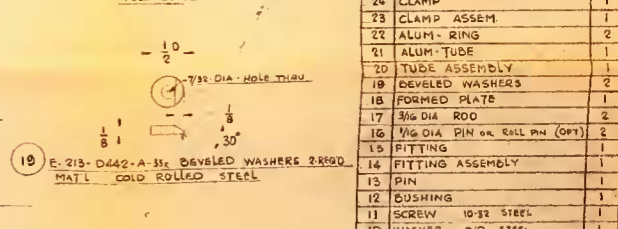 - 1/2 D -
7/32 DIA - HOLE THRU
1/8
1/8
30°
19 E-213-D442-A-35z BEVELED WASHERS 2-REQ'D
MAT'L COLD ROLLED STEEL
24 CLAMP 1
23 CLAMP ASSEM. 1
22 ALUM-RING 2
21 ALUM-TUBE 1
20 TUBE ASSEMBLY 1
19 BEVELED WASHERS 2
18 FORMED PLATE 1
17 3/16 DIA ROD 2
16 1/16 DIA PIN OR ROLL PIN (OPT) 2
15 FITTING 1
14 FITTING ASSEMBLY 1
13 PIN 1
12 BUSHING 1
11 SCREW 10-32 STEEL 1
10 WASHER